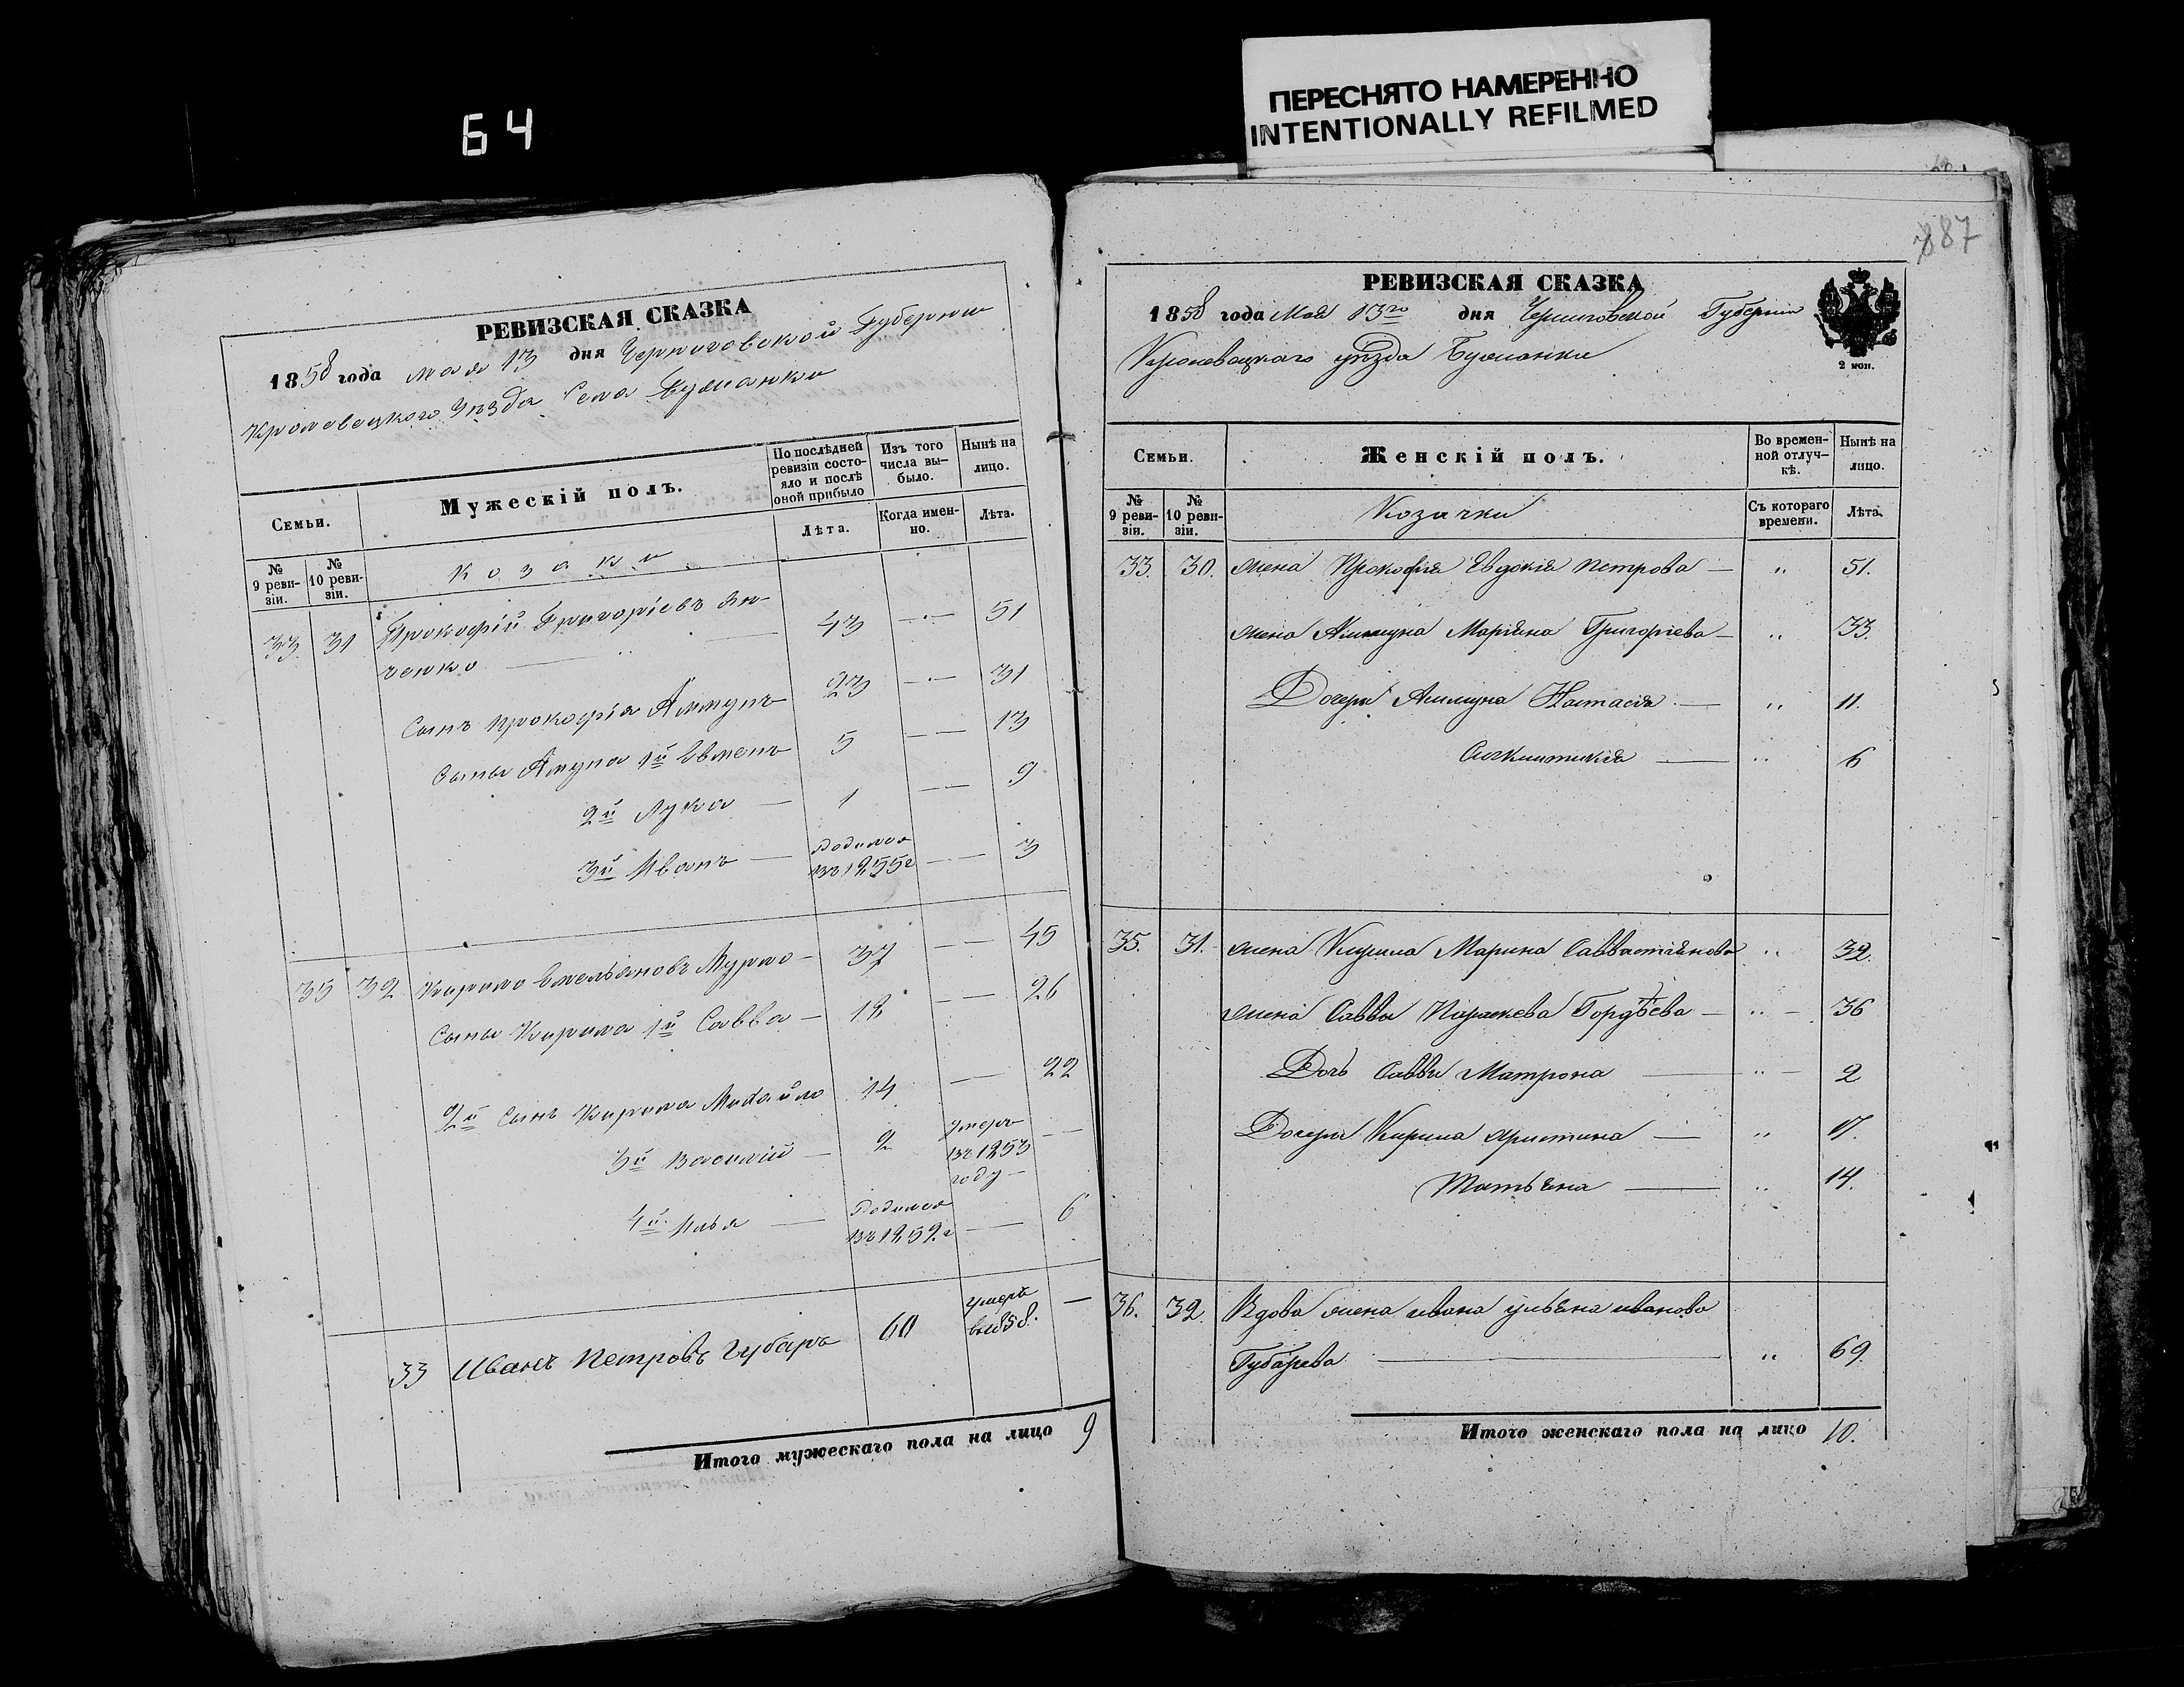 64
ПЕРЕСНЯТО НАМЕРЕННО
INTENTIONALLY REFILMED
РЕВИЗСКАЯ СКАЗКА
1858 года мая 13 дня Черниговской Губернии
Кролевецкого Уѣзда Села Буянки
Семьи.
Мужескій полъ.
По послѣдней ревизіи состояло и послѣ оной прибыло
Изъ того числа выбыло.
Нынѣ на лицо.
№ 9 ревизіи.
№ 10 ревизіи.
Козаки
Лѣта.
Когда именно.
Лѣта.
33 31 Прокофій Григоріевъ 43 — 51
ченко
Сынъ Прокофія Аммунъ 23 — 31
Сыны Амуна 1й Евменъ 5 — 13
2й Лука — 1 — 9
3й Иванъ — родился въ 1855 г — 3
35 32 Кирило Емельяновъ Мурмо 37 — 45
Сыны Кирила 1й Савва — 18 — 26
2й Сынъ Кирила Михайло 14 — 22
3й Василій — 2 умеръ въ 1853 году —
4й Илья — родился въ 1852 г — 6
33 Иванъ Петровъ Губаръ 60 умеръ въ 1858. —
Итого мужескаго пола на лицо 9
887
РЕВИЗСКАЯ СКАЗКА
1858 года Мая 13го дня Черниговской Губерніи
Кролевецкаго уѣзда Буянки
2 коп.
Семьи.
Женскій полъ.
Во временной отлучкѣ.
Нынѣ на лицо.
№ 9 ревизіи.
№ 10 ревизіи.
Козачки
Съ котораго времени.
Лѣта.
33. 30. жена Прокофія Евдокія Петрова — " 51.
жена Аммуна Маріяна Григоріева — " 33.
Дочери Аммуна Настасія — " 11.
— " 6
35. 31. жена Кирила Марина Савастіянова " 32.
жена Саввы Параскева Гордѣева — " — 36
Дочь Саввы Матрона — " — 2
Дочери Кирила Христина — " 17.
Татьяна — " 14.
36. 32. Вдова жена Ивана Ульяна Иванова
Губарева — " 69.
Итого женскаго пола на лицо 10.